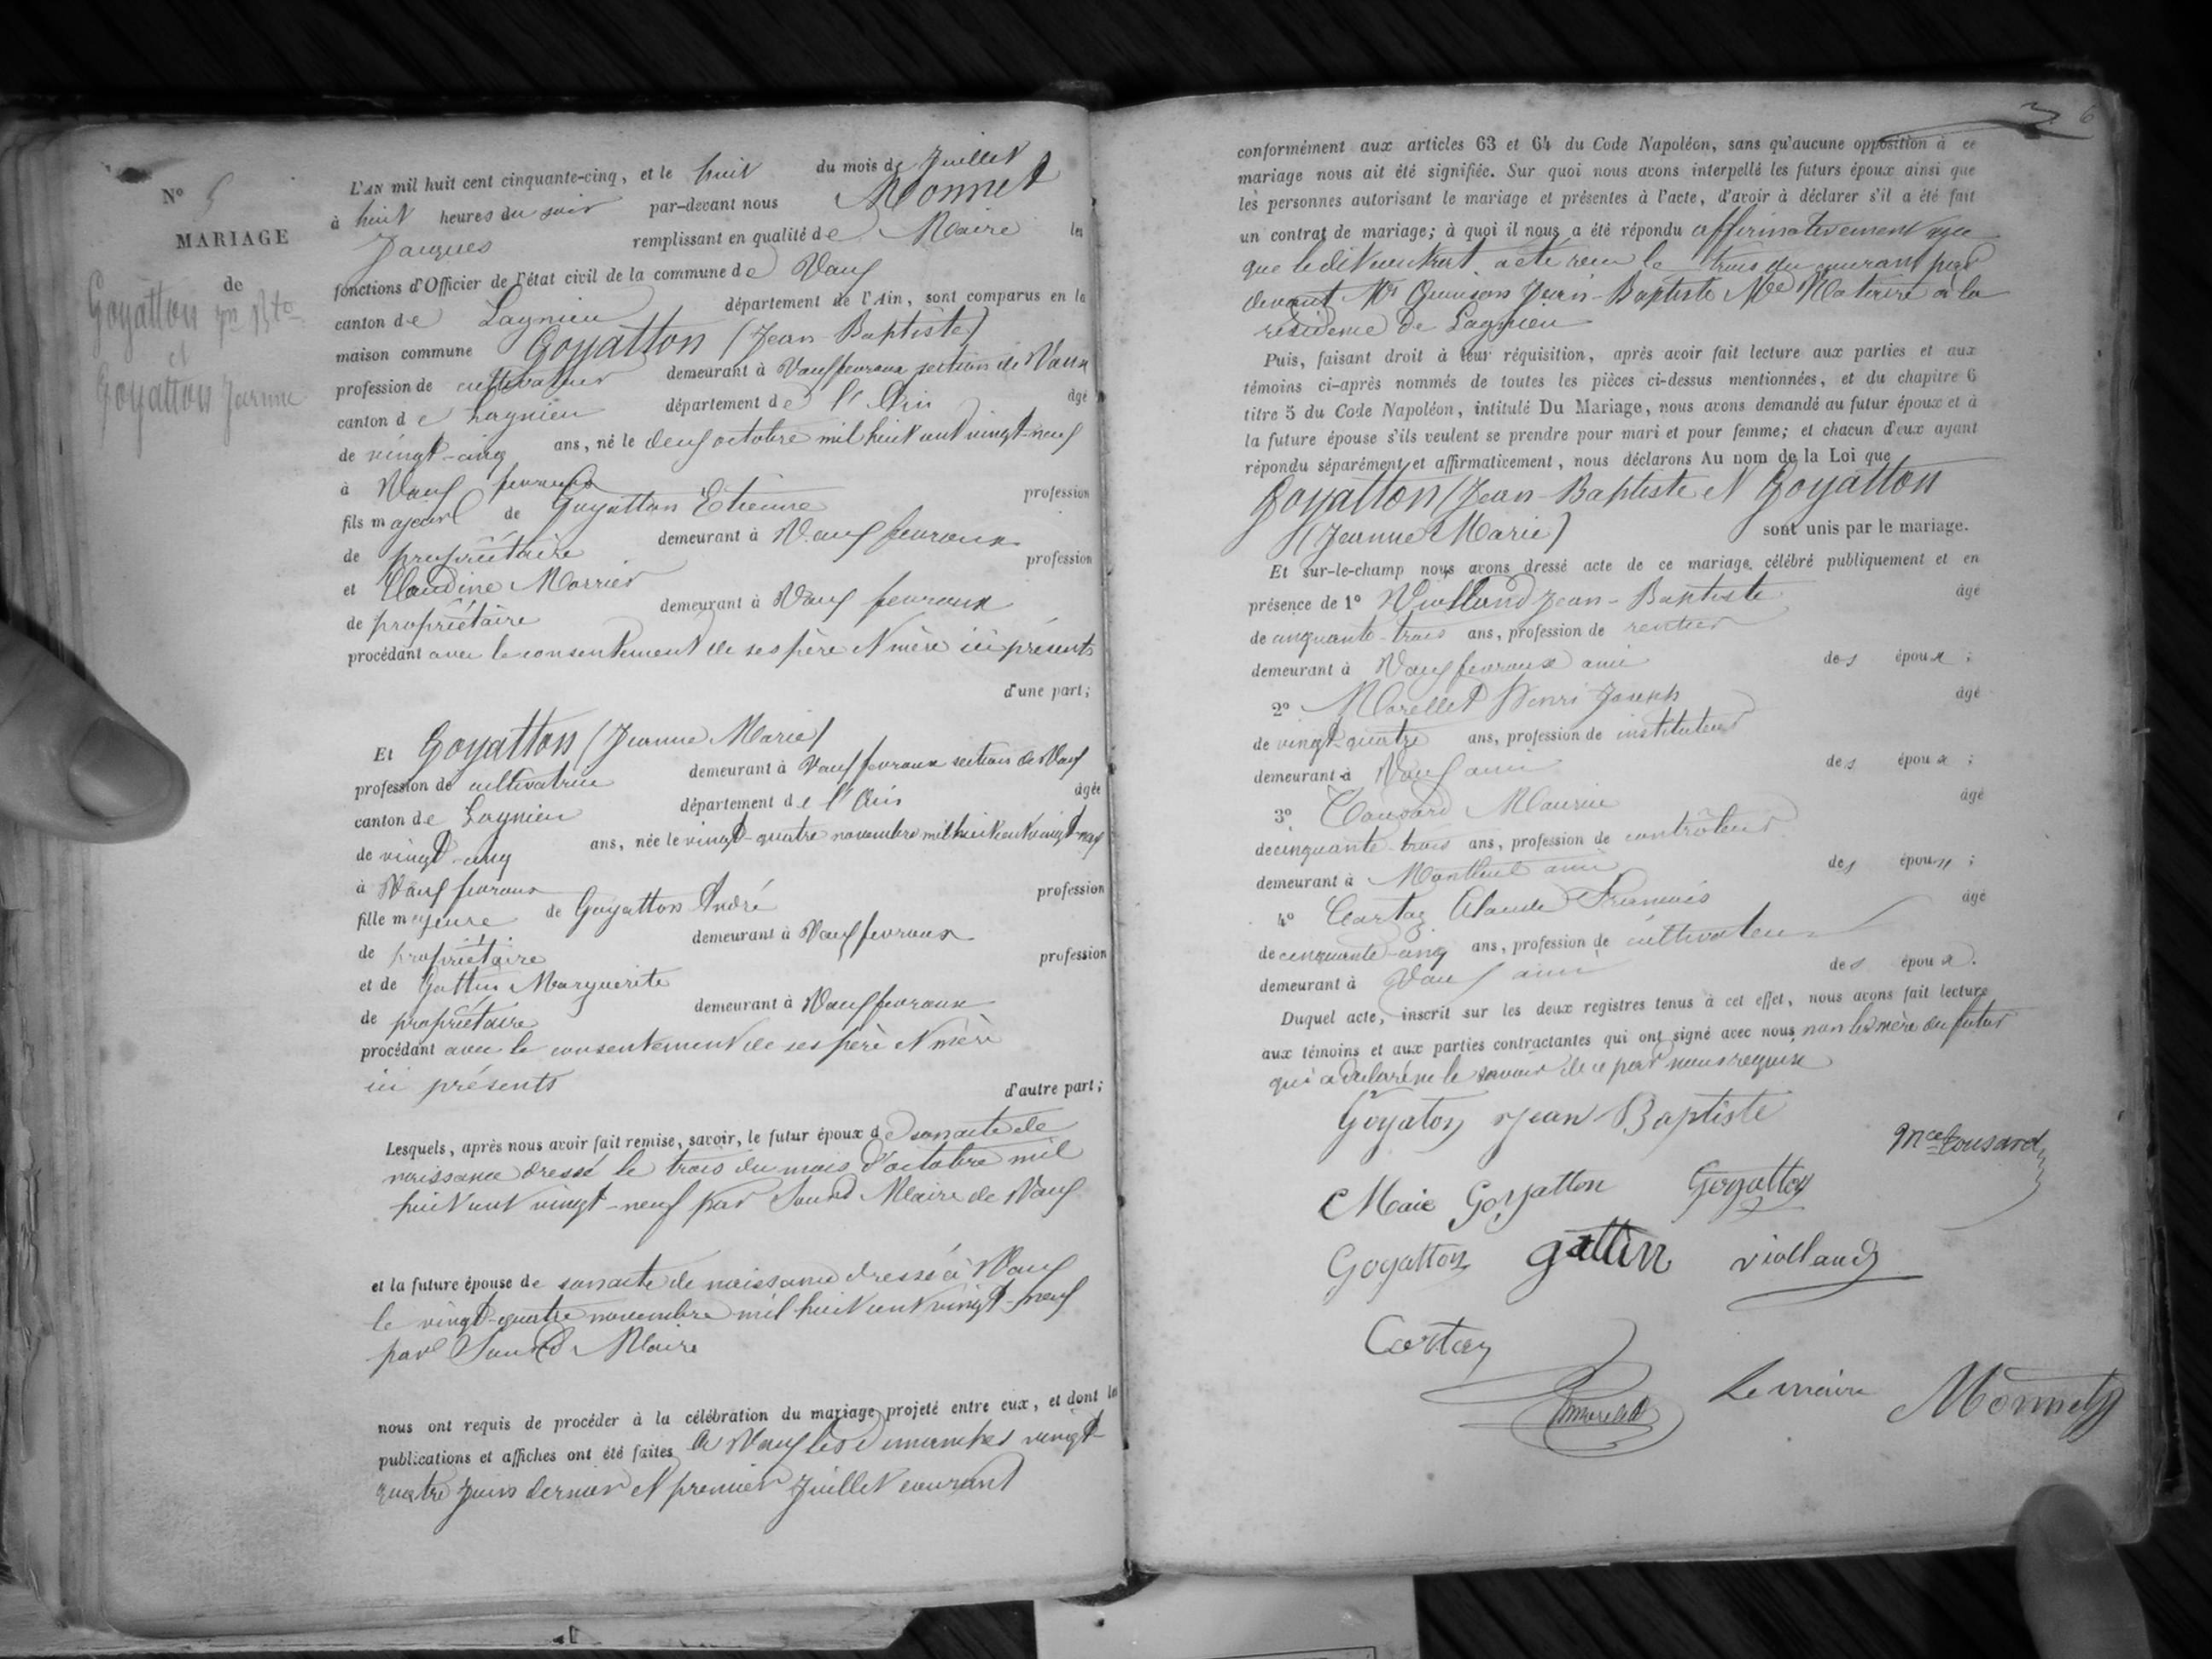 N° 5
MARIAGE
de
Goyatton Jn Bte
et
Goyatton Jeanne
L'AN mil huit cent cinquante-cinq, et le huit du mois de Juillet
à huit heures du soir par-devant nous Monnet
Jacques remplissant en qualité de Maire les
fonctions d'Officier de l'état civil de la commune de Vaux
canton de Lagnieu département de l'Ain, sont comparus en la
maison commune Goyatton (Jean-Baptiste)
profession de cultivateur demeurant à Vaux fevroux section de Vaux
canton de Lagnieu département de l'Ain âgé
de vingt-cinq ans, né le deux octobre mil huit cent vingt-neuf
à Vaux fevroux
fils majeur de Goyatton Etienne profession
de propriétaire demeurant à Vaux fevroux
et Claudine Morrier profession
de propriétaire demeurant à Vaux fevroux
procédant avec le consentement de ses père et mère ici présents
d'une part;
Et Goyatton (Jeanne Marie)
profession de cultivatrice demeurant à Vaux fevroux section de Vaux
canton de Lagnieu département de l'Ain âgée
de vingt-cinq ans, née le vingt-quatre novembre mil huit cent vingt-neuf
à Vaux fevroux
fille majeure de Goyatton André profession
de propriétaire demeurant à Vaux fevroux
et de Gattin Marguerite profession
de propriétaire demeurant à Vaux fevroux
procédant avec le consentement de ses père et mère
ici présents
d'autre part;
Lesquels, après nous avoir fait remise, savoir, le futur époux de son acte de
naissance dressé le trois du mois d'octobre mil
huit cent vingt-neuf par Maire de Vaux
et la future épouse de son acte de naissance dressé à Vaux
le vingt-quatre novembre mil huit cent vingt-neuf
par Maire
nous ont requis de procéder à la célébration du mariage projeté entre eux, et dont les
publications et affiches ont été faites à Vaux les dimanches vingt-
quatre juin dernier et premier Juillet courant
6
conformément aux articles 63 et 64 du Code Napoléon, sans qu'aucune opposition à ce
mariage nous ait été signifiée. Sur quoi nous avons interpellé les futurs époux ainsi que
les personnes autorisant le mariage et présentes à l'acte, d'avoir à déclarer s'il a été fait
un contrat de mariage; à quoi il nous a été répondu affirmativement
que le dit contrat a été reçu le trois du courant par
devant Mr Jean-Baptiste Notaire à la
résidence de Lagnieu
Puis, faisant droit à leur réquisition, après avoir fait lecture aux parties et aux
témoins ci-après nommés de toutes les pièces ci-dessus mentionnées, et du chapitre 6
titre 5 du Code Napoléon, intitulé Du Mariage, nous avons demandé au futur époux et à
la future épouse s'ils veulent se prendre pour mari et pour femme; et chacun d'eux ayant
répondu séparément et affirmativement, nous déclarons Au nom de la Loi que
Goyatton (Jean-Baptiste et Goyatton
(Jeanne Marie) sont unis par le mariage.
Et sur-le-champ nous avons dressé acte de ce mariage, célébré publiquement et en
présence de 1° Violland Jean-Baptiste âgé
de cinquante-trois ans, profession de rentier
demeurant à Vaux fevroux ami des époux;
2° Morellet Henri Joseph âgé
de vingt-quatre ans, profession de instituteur
demeurant à Vaux ami des époux;
3° Cousard Maurice âgé
de cinquante-trois ans, profession de contrôleur
demeurant à ami des époux;
4° Cartaz Claude François âgé
de cinquante-cinq ans, profession de cultivateur
demeurant à Vaux ami des époux.
Duquel acte, inscrit sur les deux registres tenus à cet effet, nous avons fait lecture
aux témoins et aux parties contractantes qui ont signé avec nous, non la mère du futur
qui a déclaré ne le savoir de ce par nous requise
Goyaton Jean Baptiste
Mce Cousard
Marie Goyatton Goyatton
Goyatton gattin violland
Cartaz
Morellet Le maire Monnet